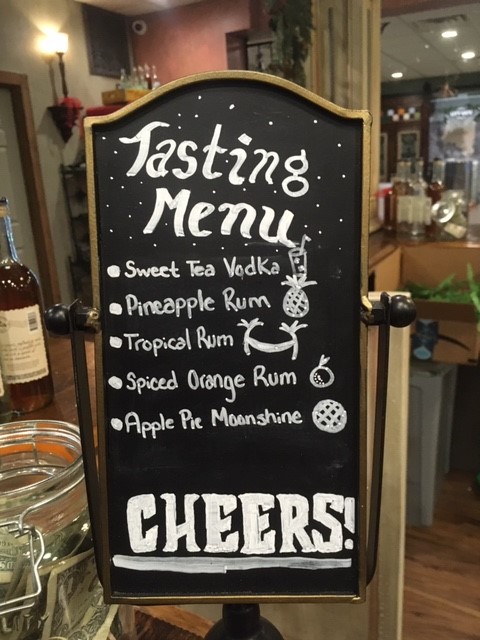 Tasting
Menu
Sweet Tea Vodka
Pineapple Rum
Tropical Rum
Spiced Orange Rum
Apple Pie Moonshine
CHEERS!